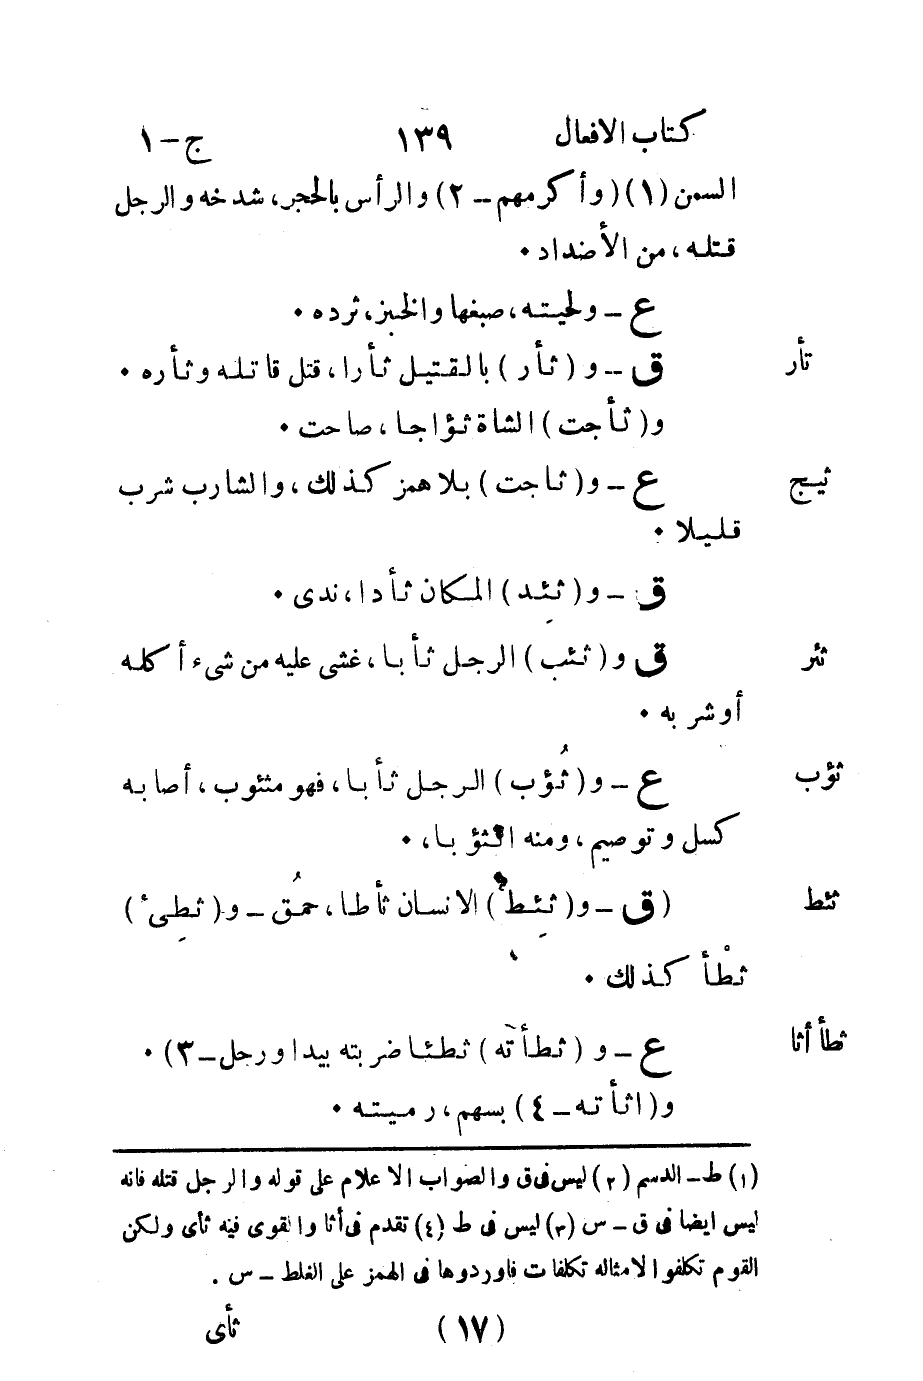 كتاب الافعال ١٣٩ ج-١
السمن (١) (وأكرمهم-٢) والرأس بالحجر، شدخه والرجل
قتله، من الأضداد ٠
ع - ولحيته، صبغها والخبز، ثرده ٠
ثأر ق - و (ثأر) بالقتيل ثأرا، قتل قاتله وثأره ٠
و(ثأجت) الشاة ثؤاجا، صاحت ٠
ثيج ع - و(ثاجت) بلا همز كذلك، والشارب شرب
قليلا ٠
ق - و(ثئد) المكان ثأدا، ندى ٠
ثئر ق و(ثئب) الرجل ثأبا، غشى عليه من شىء أكله
أوشربه ٠
ثؤب ع - و(ثُؤب) الرجل ثأبا، فهو مثئوب، أصابه
كسل وتوصيم، ومنه الثؤباء ٠
ثئط (ق - و(ثئط) الانسان ثأطا، حمُق - و(ثطىء)
ثطْأ كذلك ٠
ثطأ أثا ع - و (ثطأته) ثطئا ضربته بيد اورجل-٣) ٠
و(اثأته-٤) بسهم، رميته ٠
(١) ط- الدسم (٢) ليس فى ق والصواب الاعلام على قوله والرجل قتله فانه
ليس ايضا فى ق - س (٣) ليس فى ط (٤) تقدم فى أثا والقوى فيه ثأى ولكن
القوم تكلفوا لامثاله تكلفات فاوردوها فى الهمز على الغلط - س .
(١٧) ثأى